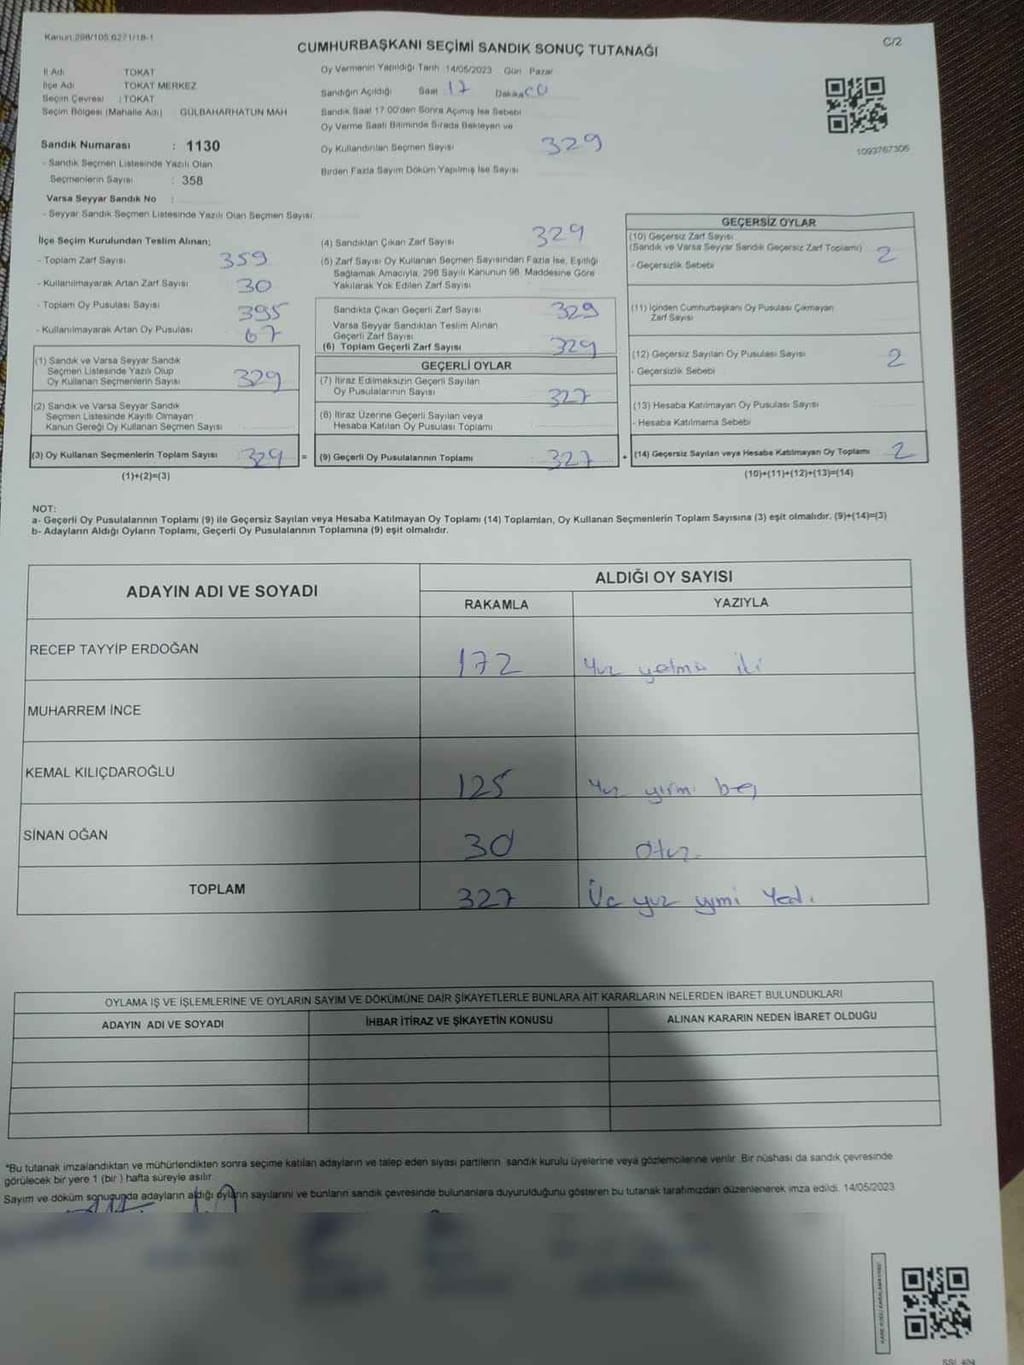 Kanun 298/105.6271/18-1
C/2
CUMHURBAŞKANI SEÇİMİ SANDIK SONUÇ TUTANAĞI
İl Adı TOKAT
İlçe Adı TOKAT MERKEZ
Seçim Çevresi : TOKAT
Seçim Bölgesi (Mahalle Adı) GÜLBAHARHATUN MAH
Sandık Numarası : 1130
- Sandık Seçmen Listesinde Yazılı Olan
Seçmenlerin Sayısı : 358
Varsa Seyyar Sandık No :
- Seyyar Sandık Seçmen Listesinde Yazılı Olan Seçmen Sayısı:
Oy Vermenin Yapıldığı Tarih :14/05/2023 Gün Pazar
Sandığın Açıldığı Saat 17 Dakika 00
Sandık Saat 17:00'den Sonra Açılmış İse Sebebi
Oy Verme Saati Bitiminde Sırada Bekleyen ve
Oy Kullandırılan Seçmen Sayısı 329
Birden Fazla Sayım Döküm Yapılmış İse Sayısı
1093767306
İlçe Seçim Kurulundan Teslim Alınan;
- Toplam Zarf Sayısı 359
- Kullanılmayarak Artan Zarf Sayısı 30
- Toplam Oy Pusulası Sayısı 395
- Kullanılmayarak Artan Oy Pusulası 67
(1) Sandık ve Varsa Seyyar Sandık
Seçmen Listesinde Yazılı Olup
Oy Kullanan Seçmenlerin Sayısı 329
(2) Sandık ve Varsa Seyyar Sandık
Seçmen Listesinde Kayıtlı Olmayan
Kanun Gereği Oy Kullanan Seçmen Sayısı
(3) Oy Kullanan Seçmenlerin Toplam Sayısı 329 =
(1)+(2)=(3)
(4) Sandıktan Çıkan Zarf Sayısı 329
(5) Zarf Sayısı Oy Kullanan Seçmen Sayısından Fazla İse, Eşitliği
Sağlamak Amacıyla, 298 Sayılı Kanunun 98. Maddesine Göre
Yakılarak Yok Edilen Zarf Sayısı
Sandıkta Çıkan Geçerli Zarf Sayısı 329
Varsa Seyyar Sandıktan Teslim Alınan
Geçerli Zarf Sayısı
(6) Toplam Geçerli Zarf Sayısı 329
GEÇERLİ OYLAR
(7) İtiraz Edilmeksizin Geçerli Sayılan
Oy Pusulalarının Sayısı 327
(8) İtiraz Üzerine Geçerli Sayılan veya
Hesaba Katılan Oy Pusulası Toplamı
(9) Geçerli Oy Pusulalarının Toplamı 327 +
GEÇERSİZ OYLAR
(10) Geçersiz Zarf Sayısı
(Sandık ve Varsa Seyyar Sandık Geçersiz Zarf Toplamı) 2
- Geçersizlik Sebebi
(11) İçinden Cumhurbaşkanı Oy Pusulası Çıkmayan
Zarf Sayısı
(12) Geçersiz Sayılan Oy Pusulası Sayısı 2
- Geçersizlik Sebebi
(13) Hesaba Katılmayan Oy Pusulası Sayısı
- Hesaba Katılmama Sebebi
(14) Geçersiz Sayılan veya Hesaba Katılmayan Oy Toplamı 2
(10)+(11)+(12)+(13)=(14)
NOT:
a- Geçerli Oy Pusulalarının Toplamı (9) ile Geçersiz Sayılan veya Hesaba Katılmayan Oy Toplamı (14) Toplamları, Oy Kullanan Seçmenlerin Toplam Sayısına (3) eşit olmalıdır. (9)+(14)=(3)
b- Adayların Aldığı Oyların Toplamı, Geçerli Oy Pusulalarının Toplamına (9) eşit olmalıdır.
ADAYIN ADI VE SOYADI
ALDIĞI OY SAYISI
RAKAMLA YAZIYLA
RECEP TAYYİP ERDOĞAN 172 Yüz yetmiş iki
MUHARREM İNCE
KEMAL KILIÇDAROĞLU 125 Yüz yirmi beş
SİNAN OĞAN 30 Otuz
TOPLAM 327 Üç yüz yirmi Yedi
OYLAMA İŞ VE İŞLEMLERİNE VE OYLARIN SAYIM VE DÖKÜMÜNE DAİR ŞİKAYETLERLE BUNLARA AİT KARARLARIN NELERDEN İBARET BULUNDUKLARI
ADAYIN ADI VE SOYADI İHBAR İTİRAZ VE ŞİKAYETİN KONUSU ALINAN KARARIN NEDEN İBARET OLDUĞU
*Bu tutanak imzalandıktan ve mühürlendikten sonra seçime katılan adayların ve talep eden siyasi partilerin sandık kurulu üyelerine veya gözlemcilerine verilir. Bir nüshası da sandık çevresinde
görülecek bir yere 1 (bir ) hafta süreyle asılır.
Sayım ve döküm sonucunda adayların aldığı oyların sayılarını ve bunların sandık çevresinde bulunanlara duyurulduğunu gösteren bu tutanak tarafımızdan düzenlenerek imza edildi. 14/05/2023